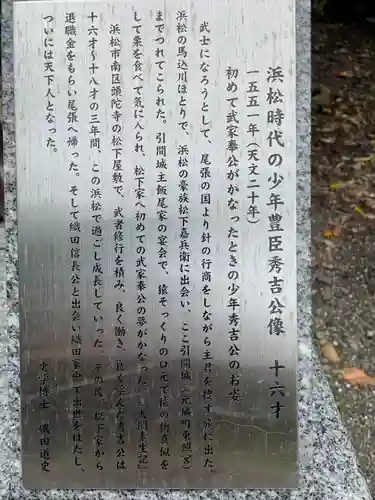 浜松時代の少年豊臣秀吉公像　十六才
一五五一年（天文二十年）
初めて武家奉公がかなったときの少年秀吉公のお姿
武士になろうとして、尾張の国より針の行商をしながら主君を捜す旅に出た。
浜松の馬込川ほとりで、浜松の豪族松下嘉兵衛に出会い、ここ引間城（元城町東照宮）
までつれてこられた。引間城主飯尾家の宴会で、猿そっくりの口元で猿の物真似を
して栗を食べて気に入られ、松下家へ初めての武家奉公の夢がかなった。「太閤素生記」
浜松市南区頭陀寺の松下屋敷で、武者修行を積み、良く働き、良く学んだ秀吉公は
十六才～十八才の三年間、この浜松で過ごし成長していった。その後、松下家から
退職金をもらい尾張へ帰った。そして織田信長公と出会い織田家中で出世をはたし、
ついには天下人となった。
史学博士　磯田道史